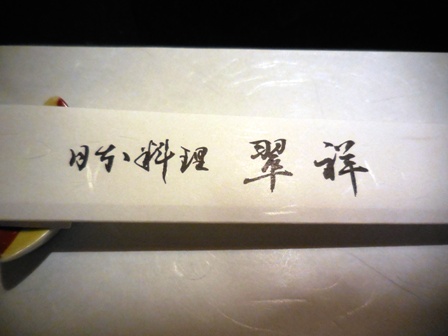 日本料理 翠祥